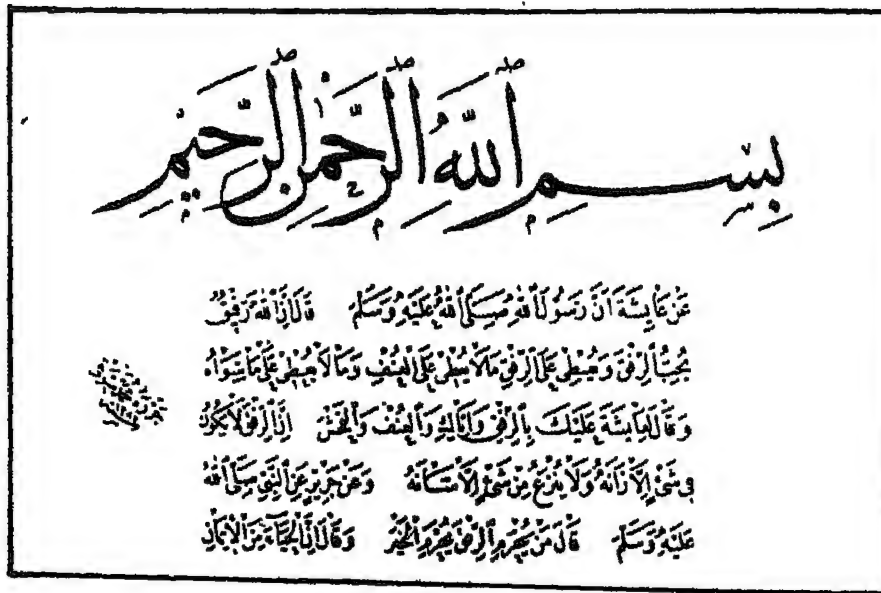 بِسْمِ ٱللَّهِ ٱلرَّحْمٰنِ ٱلرَّحِيمِ
عَنْ عَايِشَةَ اَنَّ رَسُولَ ٱللهِ صَلَّى ٱللهُ عَلَيْهِ وَسَلَّمَ قَالَ اِنَّ ٱللهَ رَفِيقٌ
يُحِبُّ ٱلرِّفْقَ وَيُعْطِى عَلَى ٱلرِّفْقِ مَالَا يُعْطِى عَلَى ٱلْعُنْفِ وَمَالَا يُعْطِى عَلَى مَاسِوَاهُ
وَقَالَ لِعَايِشَةَ عَلَيْكَ بِٱلرِّفْقِ وَاِيَّاكِ وَٱلْعُنْفَ وَٱلْفُحْشَ اِنَّ ٱلرِّفْقَ لَايَكُونُ
فِى شَىْءٍ اِلَّا زَانَهُ وَلَا يُنْزَعُ مِنْ شَىْءٍ اِلَّا شَانَهُ وَعَنْ جَرِيرٍ عَنِ ٱلنَّبِىِّ صَلَّى ٱللهُ
عَلَيْهِ وَسَلَّمَ قَالَ مَنْ يُحْرَمِ ٱلرِّفْقَ يُحْرَمِ ٱلْخَيْرَ وَقَالَ اِنَّ ٱلْحَيَاءَ مِنَ ٱلْاِيمَانِ